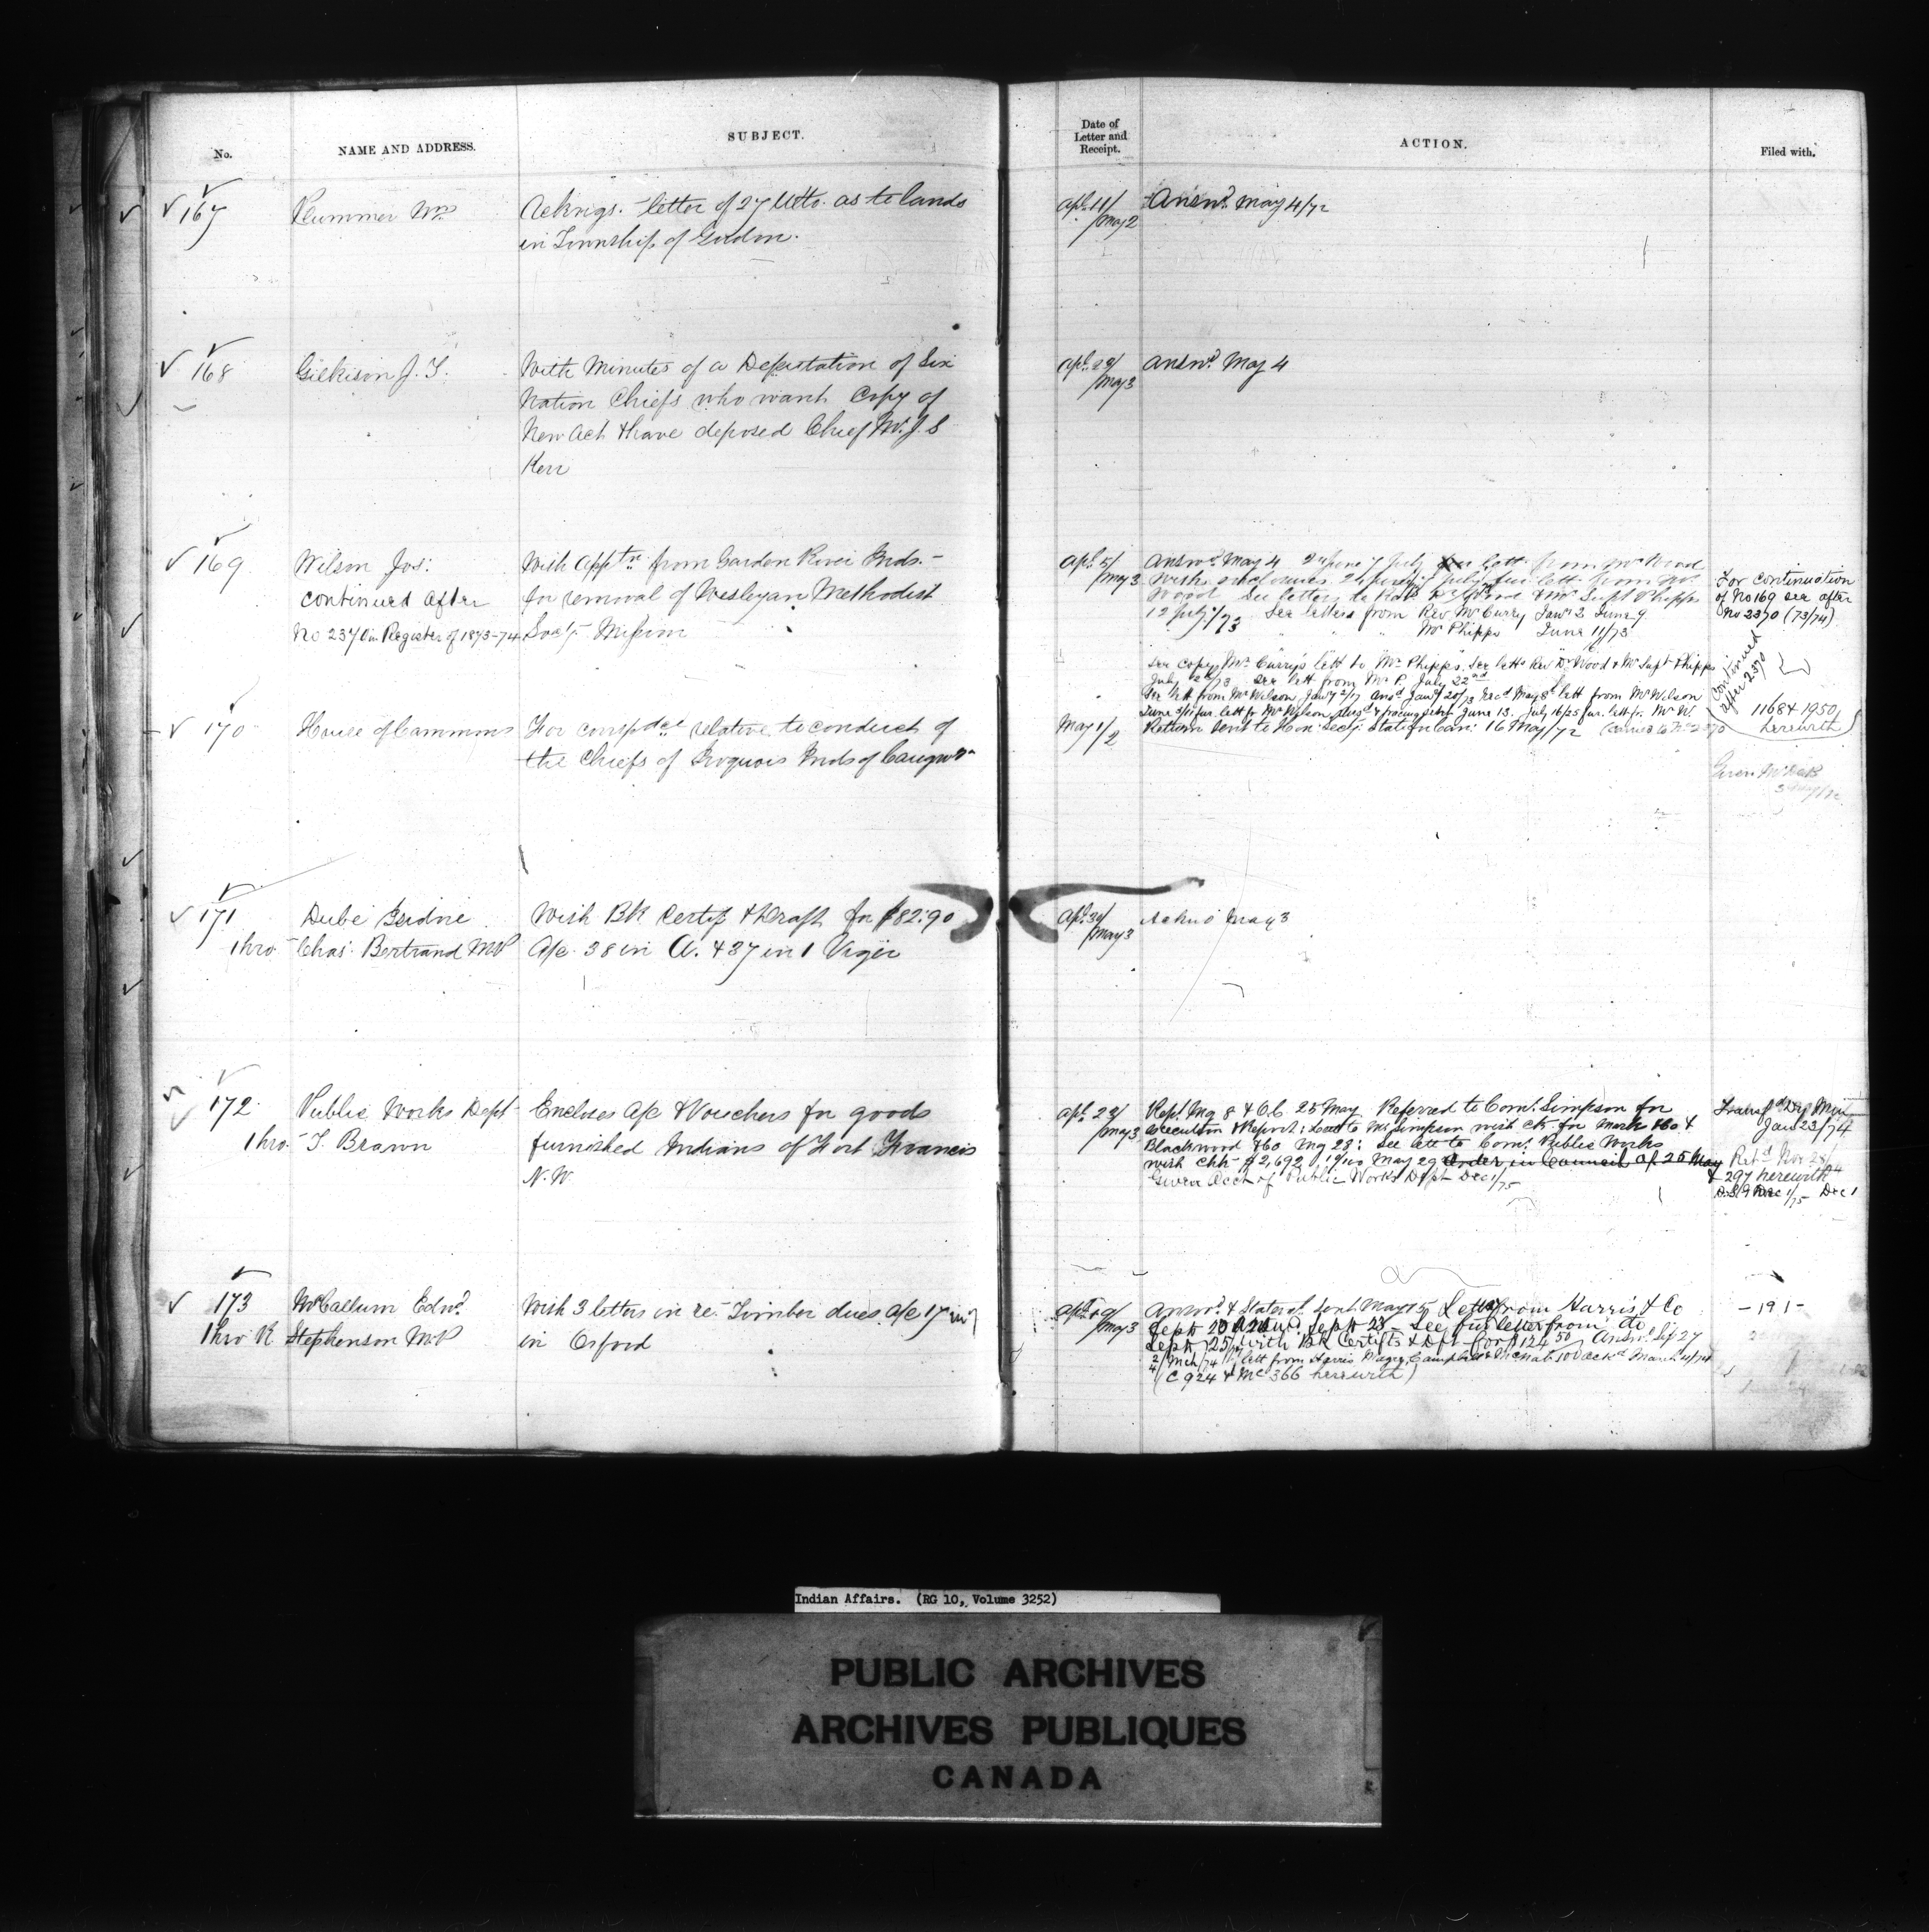 No.
NAME AND ADDRESS.
SUBJECT.
Date of
Letter and
Receipt.
ACTION.
Filed with.
167
Plummer Wm
Ackngs. letter of 27 Ulto. as to lands
in Township of Gordon.
Apl. 11/
/May 2
Answd. May 4/72
168
Gilkison J. T.
With Minutes of a Deputation of Six
Nation Chiefs who want Copy of
New Act & have deposed Chief Wm. J. S
Kerr
Apl. 29/
/May 3
Answd. May 4
169
Wilson Jos:
continued after
No 2370 in Register of 1873-74
With apptn. from Garden River Inds.
for removal of Wesleyan Methodist
Socy. Mission
Apl. 5/
/May 3
Answd. May 4 2 June 7 July fur lett. from Mr Wood
With enclosures. 24 June 7 July fur lett. from Mr.
Wood See letters to Revd Dr Wood & Mr Supt Phipps
12 July/73 See letters from Rev Mr Curry Jany 3 June 9
" " " Mr Phipps June 11/73
See copy Mr. Curry's lett to Mr. Phipps. See letts Rev Dr Wood & Mr Supt Phipps
July 12/73 See lett from Mr P. July 22nd
See lett from Mr Wilson, Jany 2/17 ansd Jany 20/73 Recd May 8 lett from Mr Wilson
June 3/11 fur. lett fr Mr Wilson, Ansd & tracing retd June 13. July 16/25 fur. lett fr. Mr W.
For continuation
of No 169 see after
No 2370 (73/74)
continued
after 2370
1168 & 1950
herewith
170
House of Commons
For correspdce relative to conduct of
the Chiefs of Iroquois Inds of Caugna
May 1/
/2
Return sent to Hon: Secy: State for Can: 16 May/72
Given Mr
171
Dubé Isidore
thro Chas. Bertrand MP
With Bk Certif & Draft for $82.90
A/c 38 in A. & 37 in 1 Viger
Apl. 30/
/May 3
Ackd May 3
172
Public Works Dept
thro. T. Braun
Encloses A/c & Vouchers for goods
furnished Indians of Fort Francis
N. W.
Apl. 23/
/May 3
Rept. My 8 & O.C. 25 May. Referred to Comr. Simpson for
execution & Report: Lett to Mr Simpson with ck for Mark &Co &
Blackwood &Co My 28: See lett to Comr. Public Works
with Chk $2,692 19/100 May 29 Order in Council of 25 May
Given Acct of Public Works Dept Dec 1/75
Transfd Dy Min
Jan 23/74
Retd Nov 28/74
& 297 herewith
Dec 1/75 Dec 1
173
McCallum Edwd.
thro R Stephenson M.P
With 3 letters in re. Timber dues a/c 17 in 7
in Orford
Apl.
/May 3
Answd. & Statemt. sent May 15 Letter from Harris & Co
Sept 20 Sept 23 - See fur letter from do
Sept 25 with Bk Certifts & Dft for $124 50/ Answd. Sep 27
2/4 Mch/74 lett from Harris Magee Campbell & McNab 100 ackd March 4/74
(C 924 & Mc 366 herewith)
- 191 -
Indian Affairs. (RG 10, Volume 3252)
PUBLIC ARCHIVES
ARCHIVES PUBLIQUES
CANADA